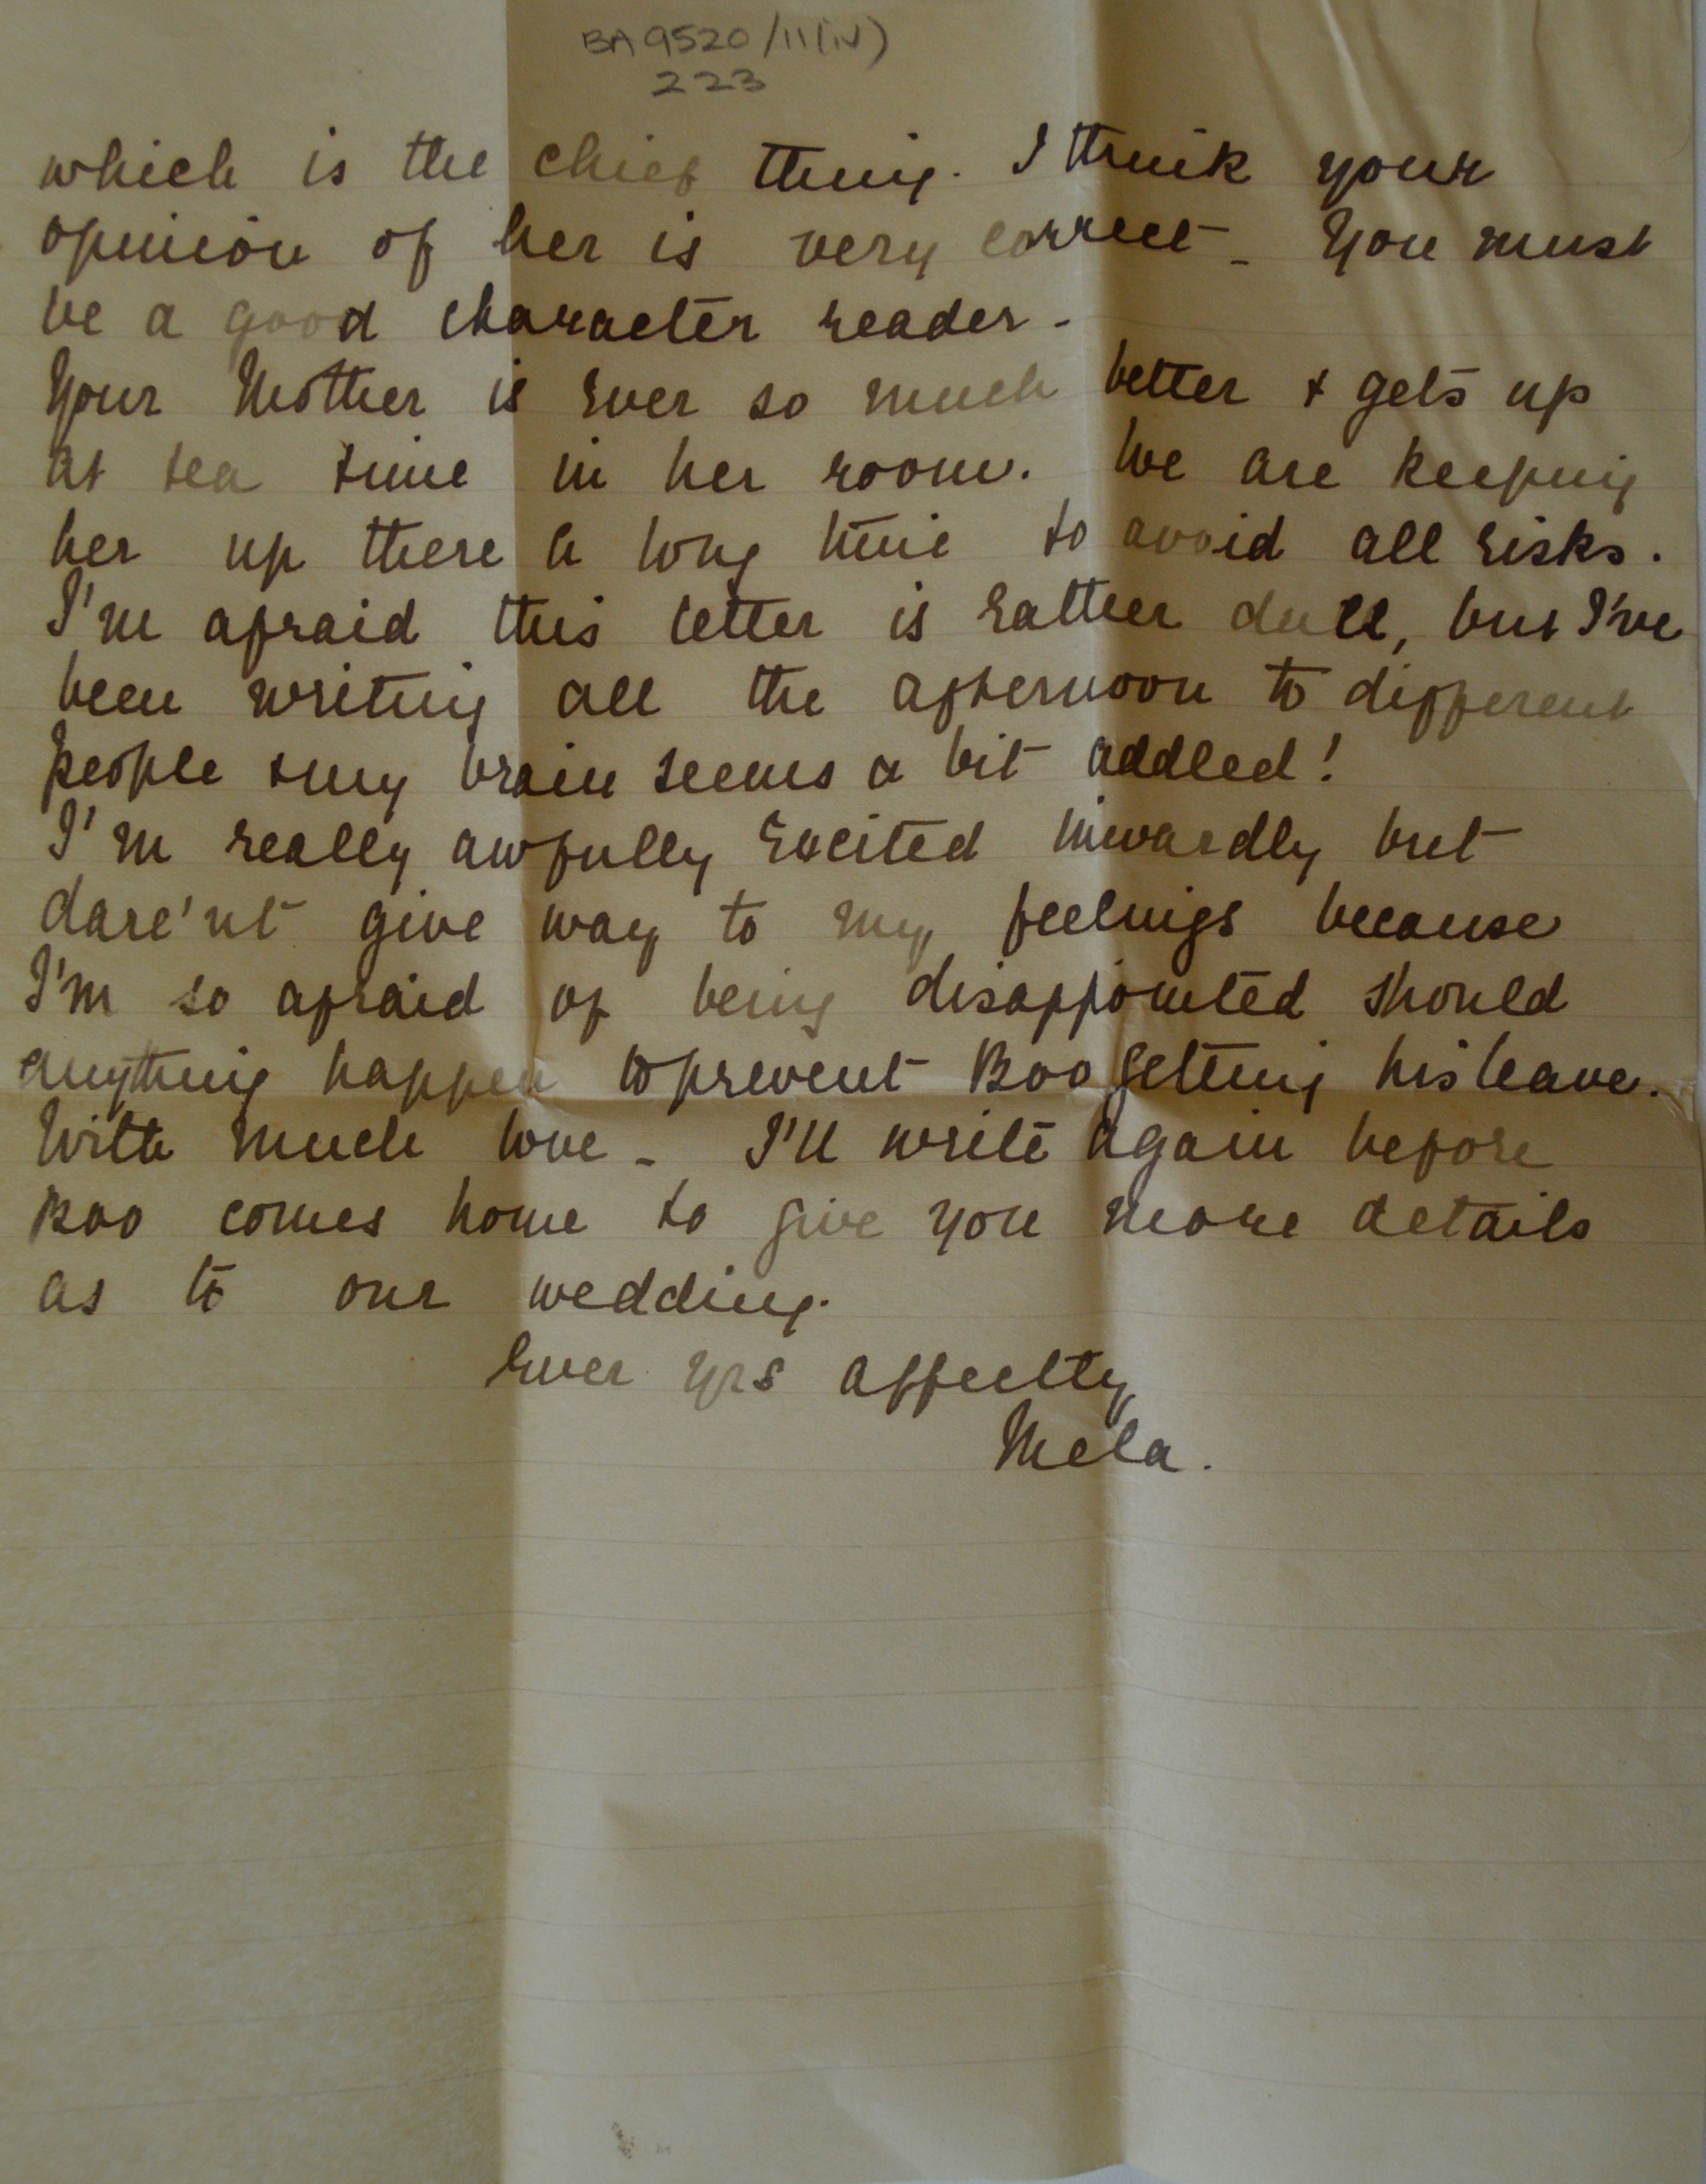 BA 9520/11(iv)
223
which is the chief thing. I think your
opinion of her is very correct - You must
be a good character reader -
Your Mother is ever so much better & gets up
at tea time in her room. We are keeping
her up there a long time to avoid all risks.
I'm afraid this letter is rather dull, but I've
been writing all the afternoon to different
people & my brain seems a bit addled!
I'm really awfully excited inwardly but
dare'nt give way to my feelings because
I'm so afraid of being disappointed should
anything happen to prevent Boo getting his leave.
With much love - I'll write again before
Boo comes home to give you more details
as to our wedding.
Ever yrs affectly
Mela.